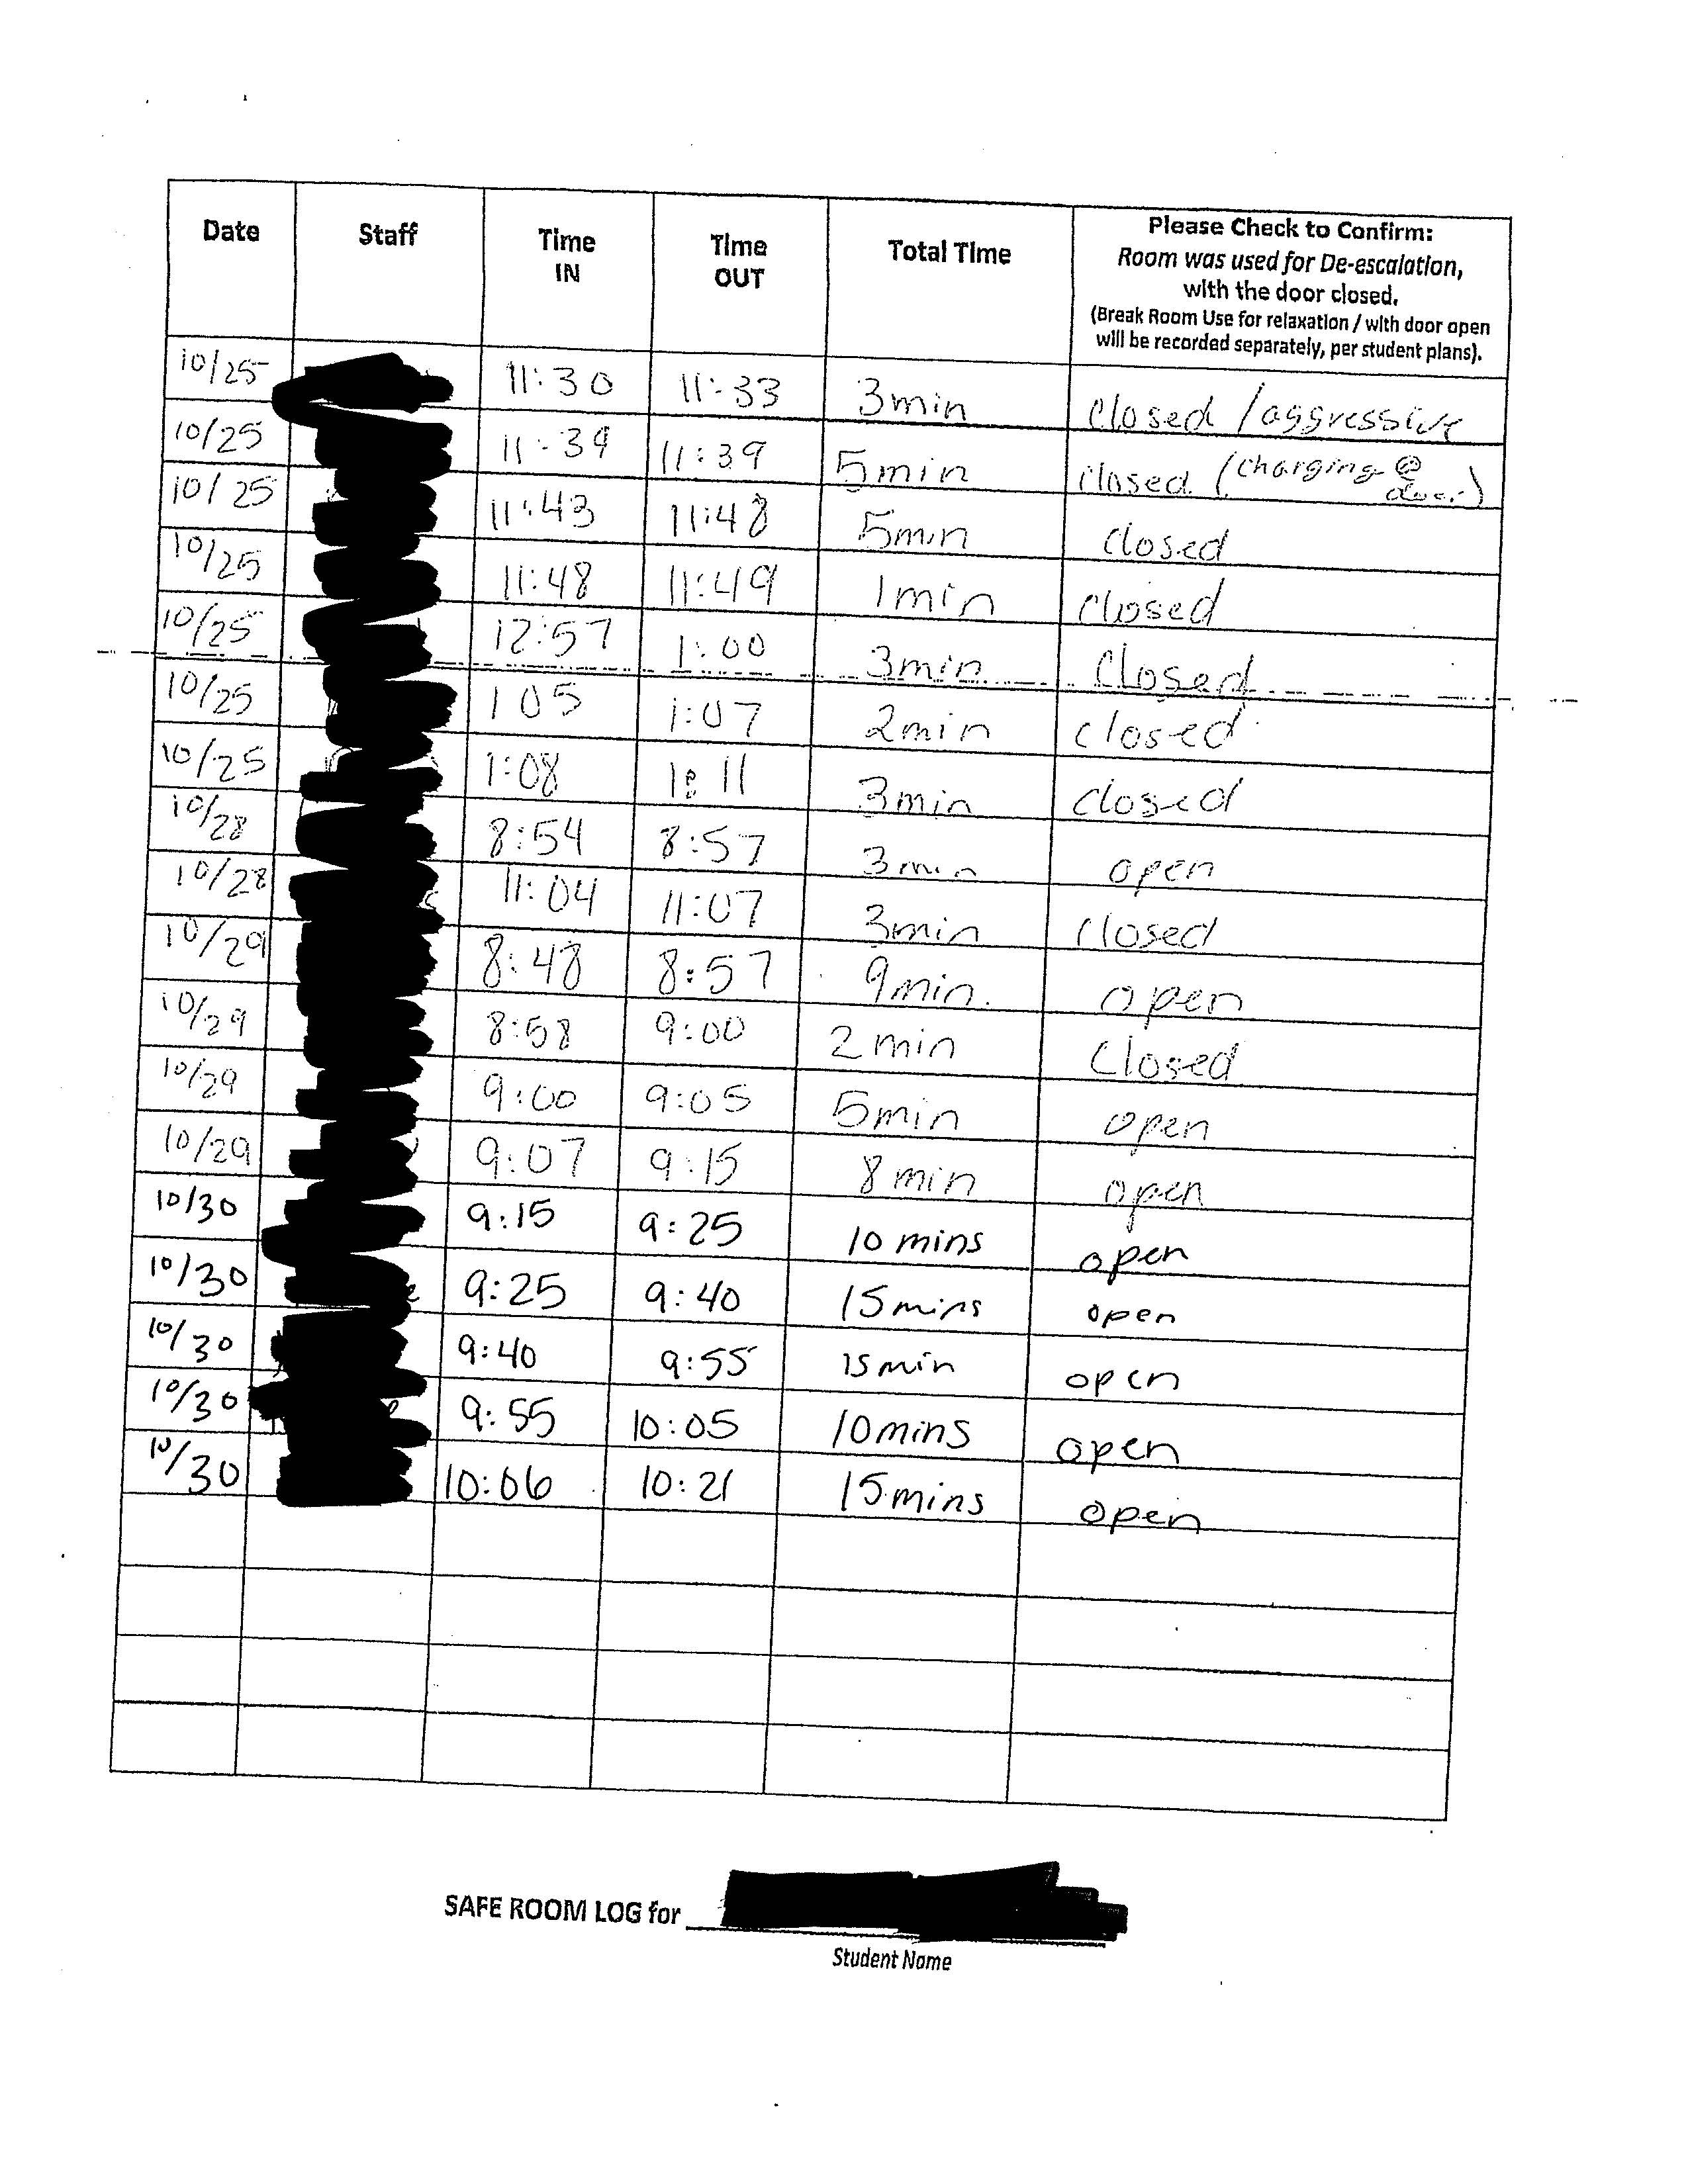 Date Staff Time IN Time OUT Total Time Please Check to Confirm:
Room was used for De-escalation,
with the door closed.
(Break Room Use for relaxation / with door open
will be recorded separately, per student plans).
10/25 11:30 11:33 3min closed / aggressive
10/25 11:34 11:39 5min closed (charging @ door)
10/25 11:43 11:48 5min closed
10/25 11:48 11:49 1min closed
10/25 12:57 1:00 3min closed
10/25 1 05 1:07 2min closed
10/25 1:08 1:11 3min closed
10/28 8:54 8:57 3min open
10/28 11:04 11:07 3min closed
10/29 8:48 8:57 9min. open
10/29 8:58 9:00 2min closed
10/29 9:00 9:05 5min open
10/29 9:07 9:15 8 min open
10/30 9:15 9:25 10 mins open
10/30 9:25 9:40 15mins open
10/30 9:40 9:55 15min open
10/30 9:55 10:05 10mins open
10/30 10:06 10:21 15mins open
SAFE ROOM LOG for
Student Name